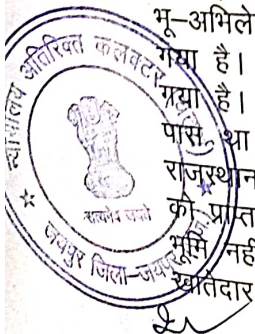 भू–अभिले
गया है।
गया है।
पास था
राजस्थान
को प्राप्त
भूमि नहीं
खातेदार
न्यायालय अतिरिक्त कलक्टर
सत्यमेव जयते
जयपुर जिला–जयपुर